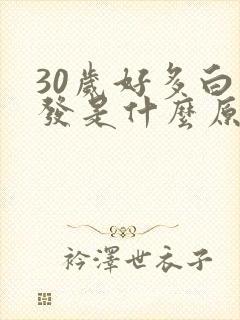 30歲好多白
發是什麼原
衿澤世衣子